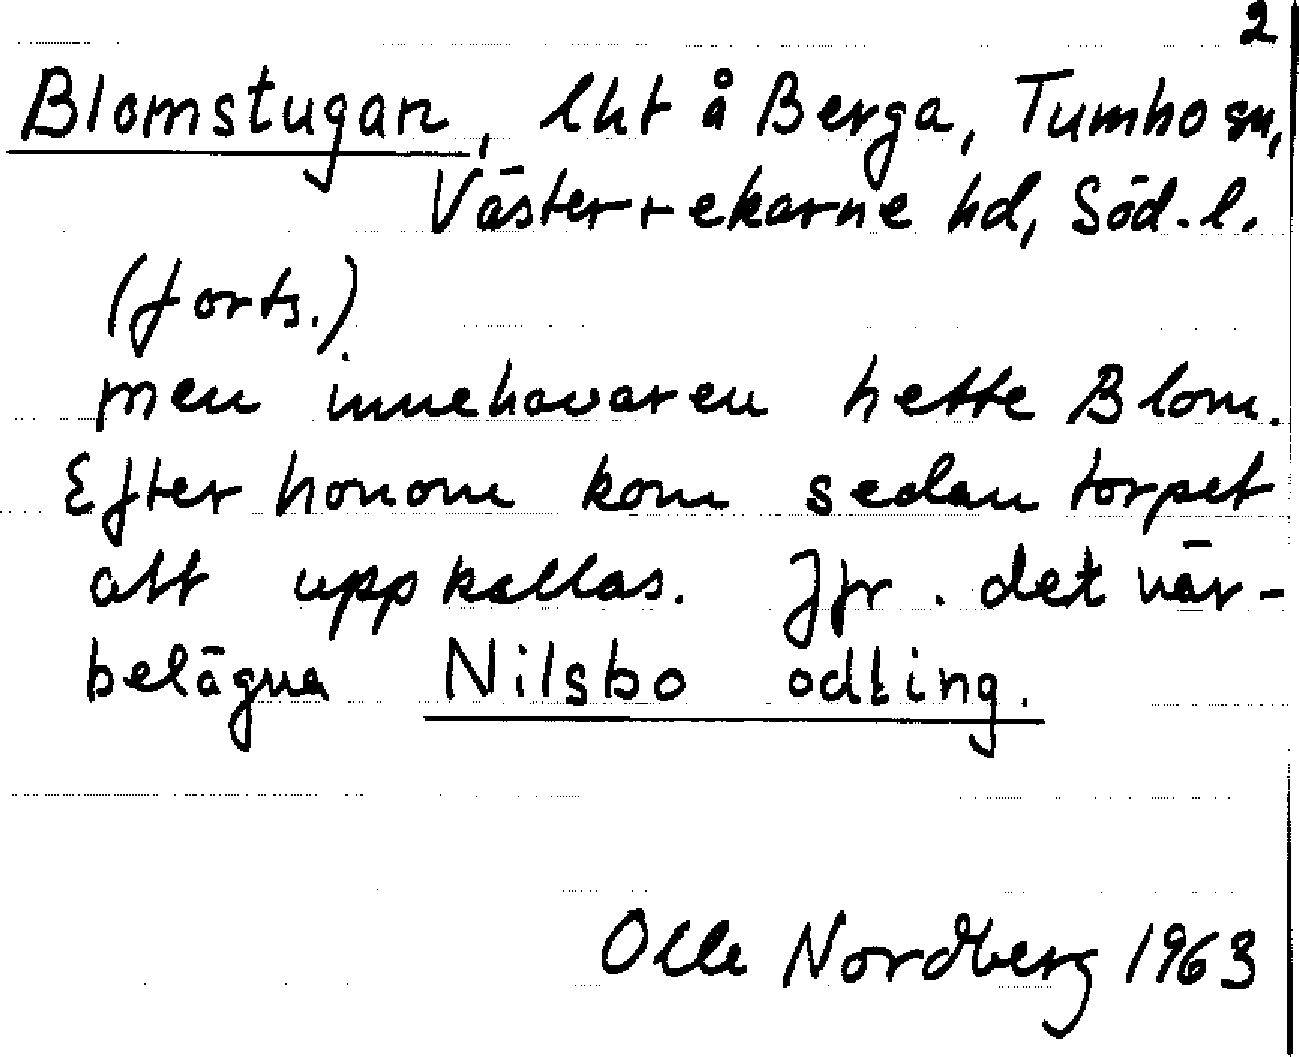 2
Blomstugan, lht å Berga, Tumbo sn,
Västerrekarne hd, Söd. l.
(forts.)
men innehavaren hette Blom.
Efter honom kom sedan torpet
att uppkallas. Jfr. det när-
belägna Nilsbo odling.
Olle Nordberg 1963